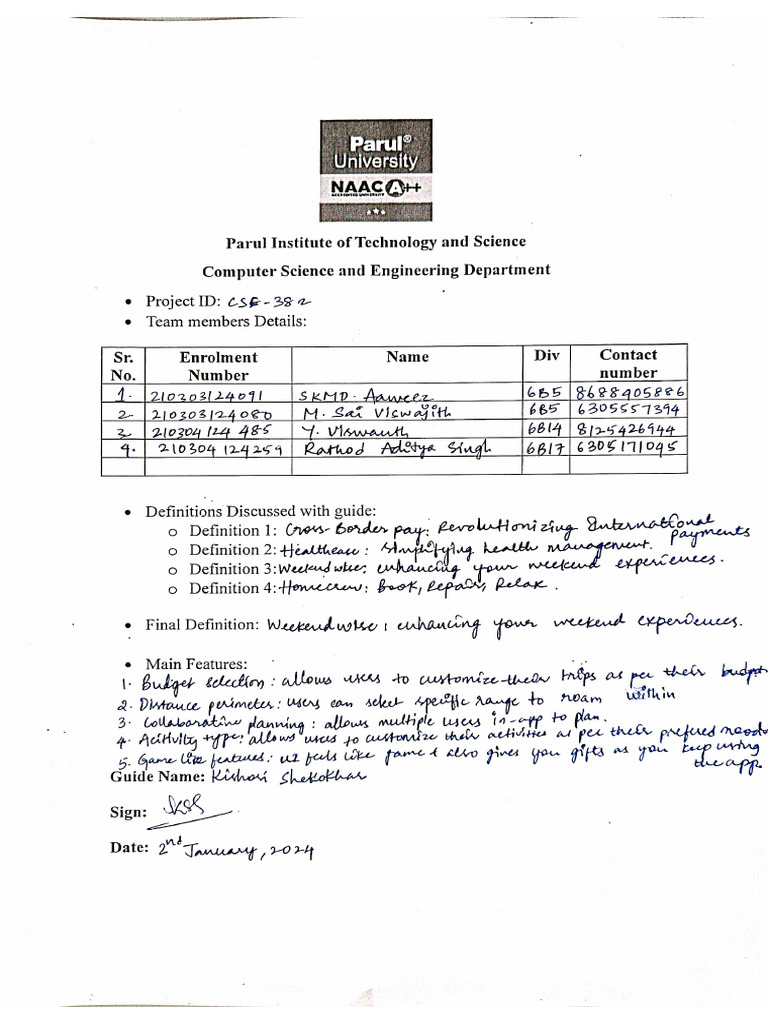 Parul®
University
NAAC A++
ACCREDITED UNIVERSITY
Parul Institute of Technology and Science
Computer Science and Engineering Department
• Project ID: CSE-382
• Team members Details:
Sr. No. Enrolment Number Name Div Contact number
1. 210303124091 SKMD. Aaweez 6B5 8688405886
2 210303124080 M. Sai Viswajith 6B5 6305557394
3 210304124485 Y. Viswanth 6B14 8125426944
4. 210304124259 Rathod Aditya Singh 6B17 6305171045
• Definitions Discussed with guide:
o Definition 1: Cross-Border pay: Revolutionizing International payments
o Definition 2: Healthease: Simplifying health management.
o Definition 3: Weekendwise: enhancing your weekend experiences.
o Definition 4: Homecrew: Book, Repair, Relax.
• Final Definition: Weekendwise: enhancing your weekend experiences.
• Main Features:
1. Budget selection: allows users to customize their trips as per their budget
2. Distance perimeter: users can select specific range to roam within
3. Collaborative planning: allows multiple users in-app to plan.
4. Acitivity type: allows users to customize their activities as per their prefered needs
5. Game like features: it feels like game & also gives you gifts as you keep using the app.
Guide Name: Kishori Shekokar
Sign:
Date: 2nd January, 2024